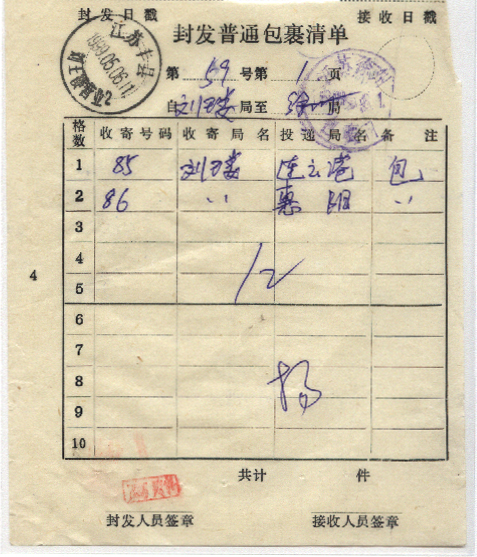 封发日戳 接收日戳
封发普通包裹清单
江苏丰县
1989.05.06.11
2
第 59 号第 1 页
自 刘王娄 局至 徐州 局
格数 收寄号码 收寄局名 投递局名 备注
1 85 刘王娄 连云港 包
2 86 〃 惠阳 〃
3
4
5
12
6
7
8
杨
9
10
4
共计 件
封发人员签章 接收人员签章